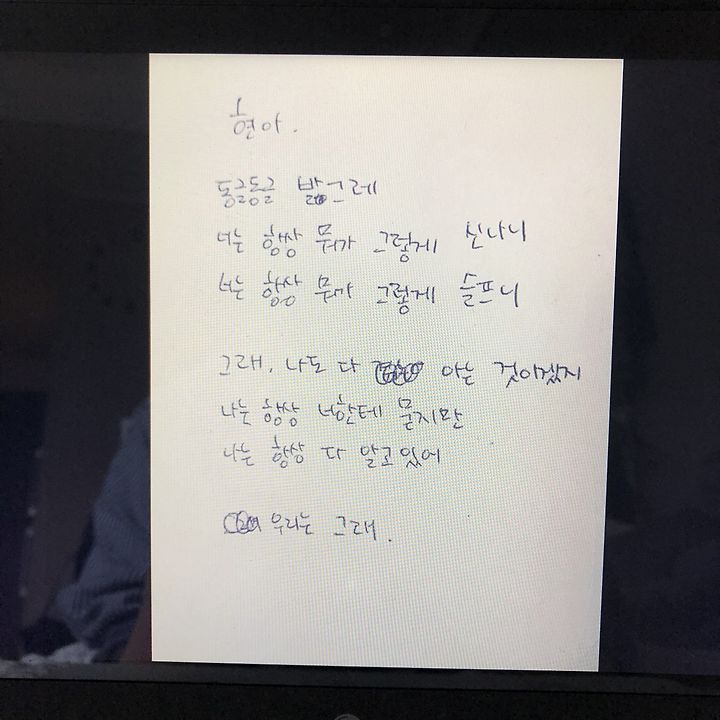 현아.
동글동글 발그레
너는 항상 뭐가 그렇게 신나니
너는 항상 뭐가 그렇게 슬프니
그래, 나도 다 아는 것이겠지
나는 항상 너한테 묻지만
나는 항상 다 알고있어
우리는 그래.